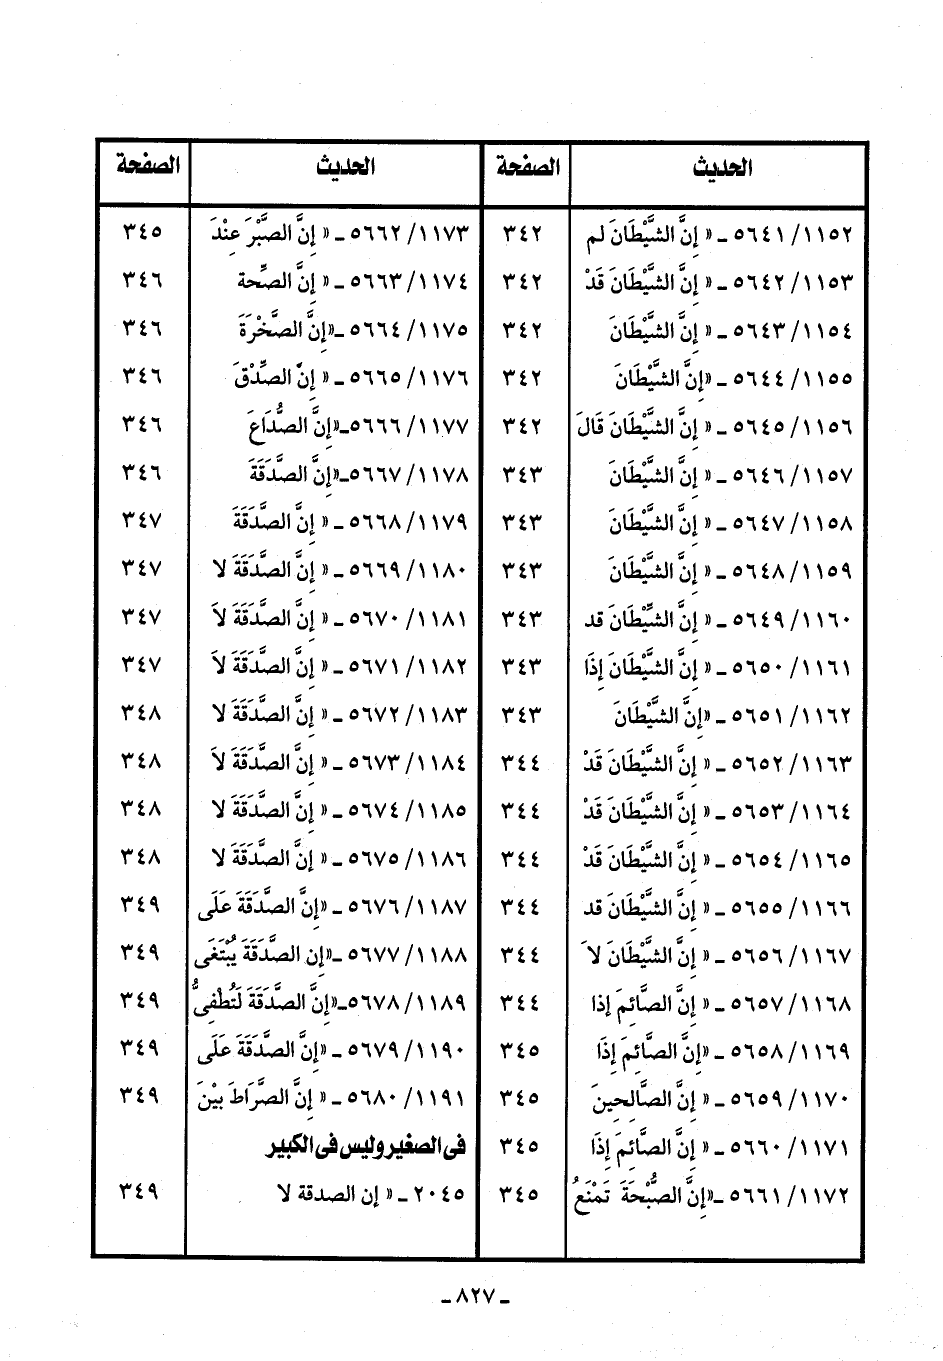 الحديث
الصفحة
١١٥٢/ ٥٦٤١ ـ « إِنَّ الشَّيْطَانَ لم
٣٤٢
١١٥٣/ ٥٦٤٢ ـ « إِنَّ الشَّيْطَانَ قَدْ
٣٤٢
١١٥٤/ ٥٦٤٣ ـ « إِنَّ الشَّيْطَانَ
٣٤٢
١١٥٥/ ٥٦٤٤ ـ «إِنَّ الشَّيْطَانَ
٣٤٢
١١٥٦/ ٥٦٤٥ ـ « إِنَّ الشَّيْطَانَ قَالَ
٣٤٢
١١٥٧/ ٥٦٤٦ ـ « إِنَّ الشَّيْطَانَ
٣٤٣
١١٥٨/ ٥٦٤٧ ـ « إِنَّ الشَّيْطَانَ
٣٤٣
١١٥٩/ ٥٦٤٨ ـ « إِنَّ الشَّيْطَانَ
٣٤٣
١١٦٠/ ٥٦٤٩ ـ « إِنَّ الشَّيْطَانَ قد
٣٤٣
١١٦١/ ٥٦٥٠ ـ « إِنَّ الشَّيْطَانَ إِذَا
٣٤٣
١١٦٢/ ٥٦٥١ ـ «إِنَّ الشَّيْطَانَ
٣٤٣
١١٦٣/ ٥٦٥٢ ـ « إِنَّ الشَّيْطَانَ قَدْ
٣٤٤
١١٦٤/ ٥٦٥٣ ـ « إِنَّ الشَّيْطَانَ قَدْ
٣٤٤
١١٦٥/ ٥٦٥٤ ـ « إِنَّ الشَّيْطَانَ قَدْ
٣٤٤
١١٦٦/ ٥٦٥٥ ـ « إِنَّ الشَّيْطَانَ قد
٣٤٤
١١٦٧/ ٥٦٥٦ ـ « إِنَّ الشَّيْطَانَ لاَ
٣٤٤
١١٦٨/ ٥٦٥٧ ـ « إِنَّ الصَّائِمَ إذا
٣٤٤
١١٦٩/ ٥٦٥٨ ـ «إِنَّ الصَّائِمَ إِذَا
٣٤٥
١١٧٠/ ٥٦٥٩ ـ « إِنَّ الصَّالِحِينَ
٣٤٥
١١٧١/ ٥٦٦٠ ـ « إِنَّ الصَّائِمَ إِذَا
٣٤٥
١١٧٢/ ٥٦٦١ ـ«إِنَّ الصُّبْحَةَ تَمْنَعُ
٣٤٥
الحديث
الصفحة
١١٧٣/ ٥٦٦٢ ـ « إِنَّ الصَّبْرَ عِنْدَ
٣٤٥
١١٧٤/ ٥٦٦٣ ـ « إِنَّ الصِّحة
٣٤٦
١١٧٥/ ٥٦٦٤ ـ«إِنَّ الصَّخْرَةَ
٣٤٦
١١٧٦/ ٥٦٦٥ ـ « إِنَّ الصِّدْقَ
٣٤٦
١١٧٧/ ٥٦٦٦ـ«إِنَّ الصُّدَاعَ
٣٤٦
١١٧٨/ ٥٦٦٧ـ«إِنَّ الصَّدَقَةَ
٣٤٦
١١٧٩/ ٥٦٦٨ ـ « إِنَّ الصَّدَقَةَ
٣٤٧
١١٨٠/ ٥٦٦٩ ـ « إِنَّ الصَّدَقَةَ لا
٣٤٧
١١٨١/ ٥٦٧٠ ـ « إِنَّ الصَّدَقَةَ لاَ
٣٤٧
١١٨٢/ ٥٦٧١ ـ « إِنَّ الصَّدَقَةَ لاَ
٣٤٧
١١٨٣/ ٥٦٧٢ ـ « إِنَّ الصَّدَقَةَ لا
٣٤٨
١١٨٤/ ٥٦٧٣ ـ « إِنَّ الصَّدَقَةَ لاَ
٣٤٨
١١٨٥/ ٥٦٧٤ ـ « إِنَّ الصَّدَقَةَ لا
٣٤٨
١١٨٦/ ٥٦٧٥ ـ « إِنَّ الصَّدَقَةَ لا
٣٤٨
١١٨٧/ ٥٦٧٦ ـ «إِنَّ الصَّدَقَةَ عَلَى
٣٤٩
١١٨٨/ ٥٦٧٧ ـ«إِن الصَّدَقَةَ يُبْتَغَى
٣٤٩
١١٨٩/ ٥٦٧٨ـ«إِنَّ الصَّدَقَةَ لَتُطْفِىُّ
٣٤٩
١١٩٠/ ٥٦٧٩ ـ «إِنَّ الصَّدَقَةَ عَلَى
٣٤٩
١١٩١/ ٥٦٨٠ ـ « إِنَّ الصِّرَاطَ بيْنَ
٣٤٩
فى الصغير وليس فى الكبير
٢٠٤٥ ـ « إن الصدقة لا
٣٤٩
ـ ٨٢٧ ـ